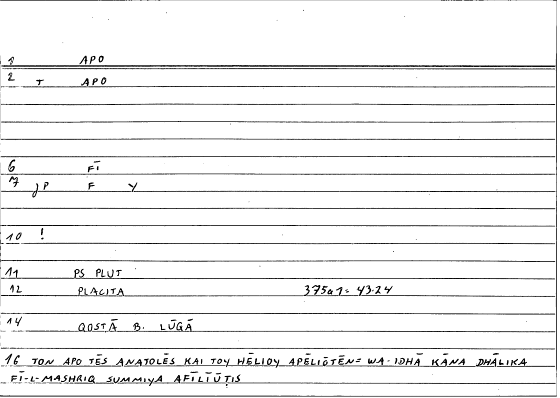 1 APO
2 T APO
6 FĪ
7 JP F Y
10 !
11 PS PLUT
12 PLACITA 375a1= 43.24
14 QOSṬĀ B. LŪQĀ
16 TON APO TĒS ANATOLĒS KAI TOY HĒLIOY APĒLIŌTĒN= WA-IDHĀ KĀNA DHĀLIKA
FĪ-L-MASHRIQ SUMMIYA AFĪLĪŪṬIS